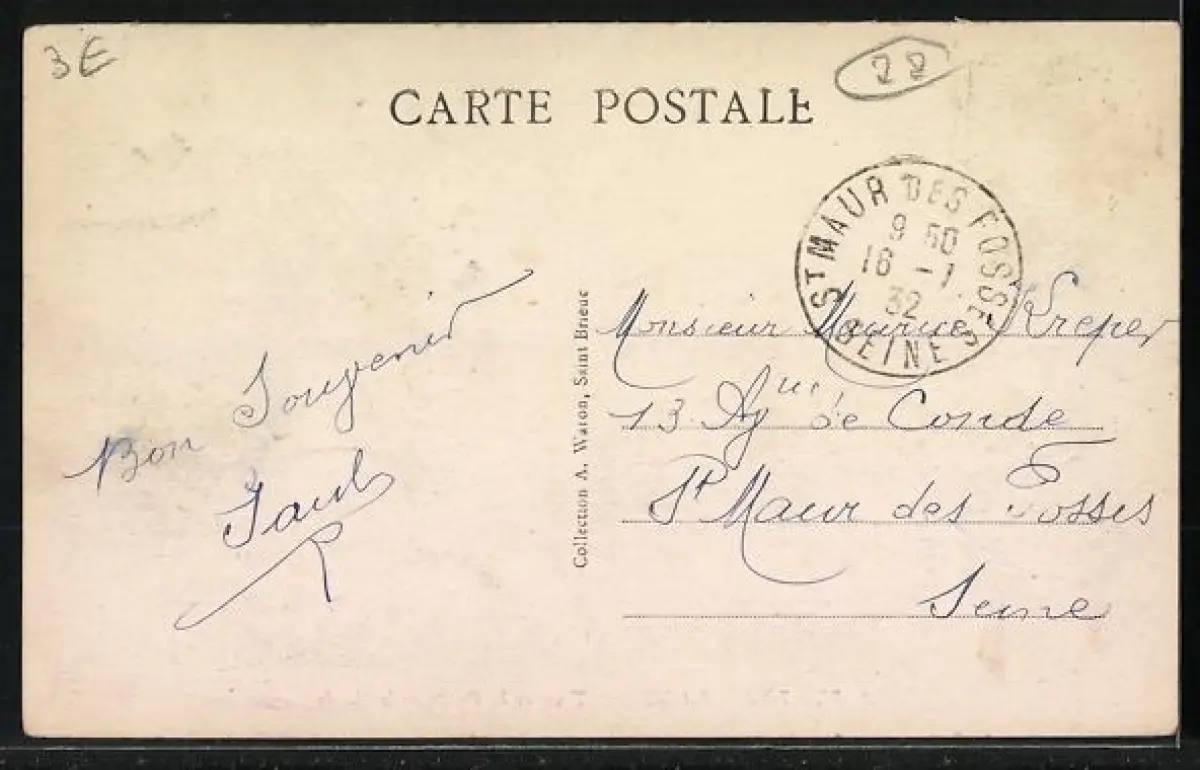 3€
22
CARTE POSTALE
ST MAUR DES FOSSES
9 50
18 -1
32
SEINE
Bon Souvenir
Collection A. Waron, Saint Brieuc
Monsieur Maurice Kreper
13 Aque de Conde
St Maur des Fosses
Seine